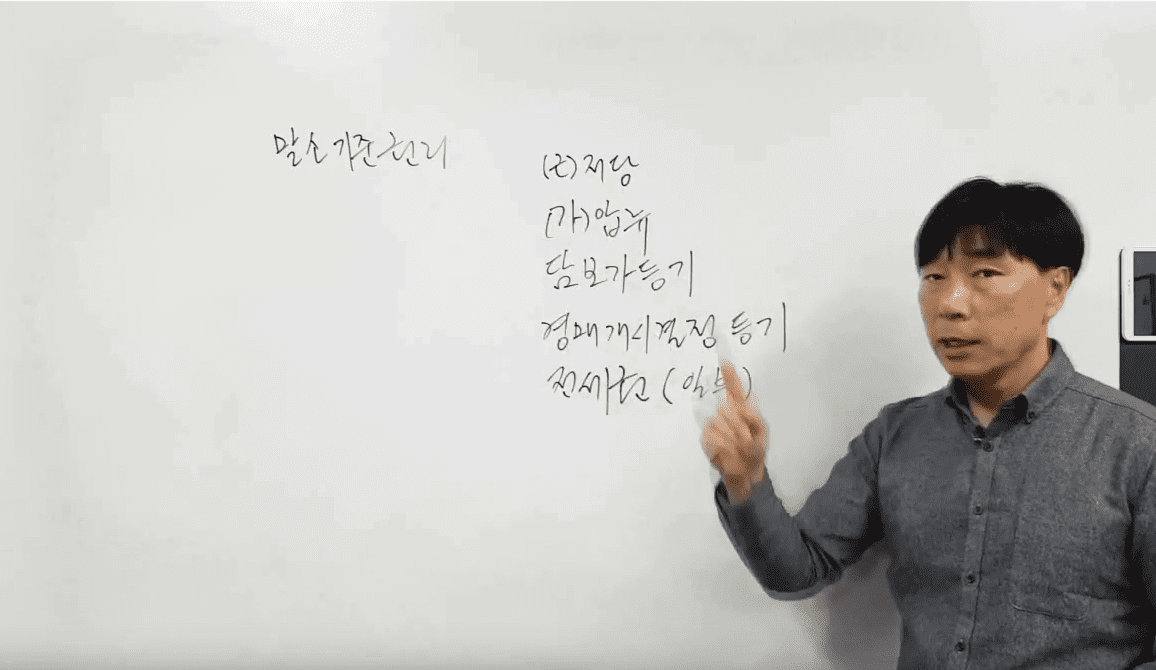 말소기준권리
(근)저당
(가)압류
담보가등기
경매개시결정 등기
전세권 (일부)